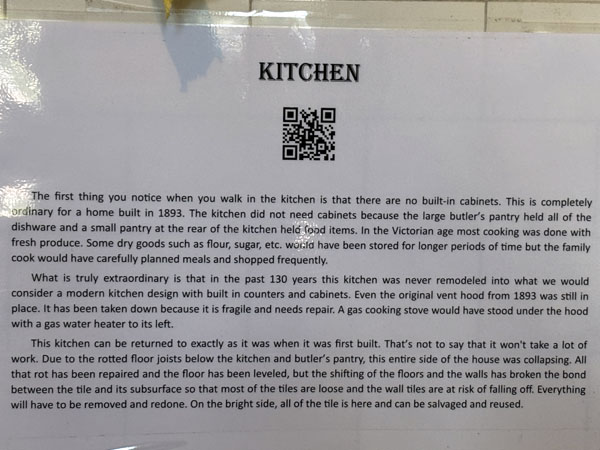 KITCHEN
The first thing you notice when you walk in the kitchen is that there are no built-in cabinets. This is completely
ordinary for a home built in 1893. The kitchen did not need cabinets because the large butler's pantry held all of the
dishware and a small pantry at the rear of the kitchen held food items. In the Victorian age most cooking was done with
fresh produce. Some dry goods such as flour, sugar, etc. would have been stored for longer periods of time but the family
cook would have carefully planned meals and shopped frequently.
What is truly extraordinary is that in the past 130 years this kitchen was never remodeled into what we would
consider a modern kitchen design with built in counters and cabinets. Even the original vent hood from 1893 was still in
place. It has been taken down because it is fragile and needs repair. A gas cooking stove would have stood under the hood
with a gas water heater to its left.
This kitchen can be returned to exactly as it was when it was first built. That's not to say that it won't take a lot of
work. Due to the rotted floor joists below the kitchen and butler's pantry, this entire side of the house was collapsing. All
that rot has been repaired and the floor has been leveled, but the shifting of the floors and the walls has broken the bond
between the tile and its subsurface so that most of the tiles are loose and the wall tiles are at risk of falling off. Everything
will have to be removed and redone. On the bright side, all of the tile is here and can be salvaged and reused.